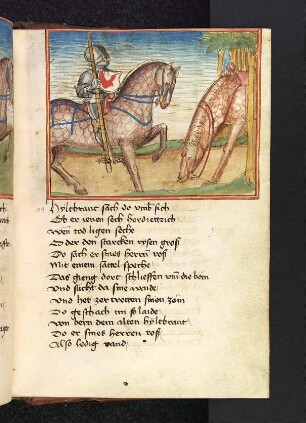 Hyltebrant sach do vmb sich
Ob er ienen sech her dietterich
Wen tod ligen sehe
Oder den starcken rysen gros
Do sach er sines herren ros
Mit einem sattel speche
Das gieng dort schlieffen vnder die bom
Vnd sůcht da sine weide
Vnd het zerrretten sinen zom
Do geschach im so laide
Von dem dem alten hyltebrant
Do er sines herren ros
Also ledig vand